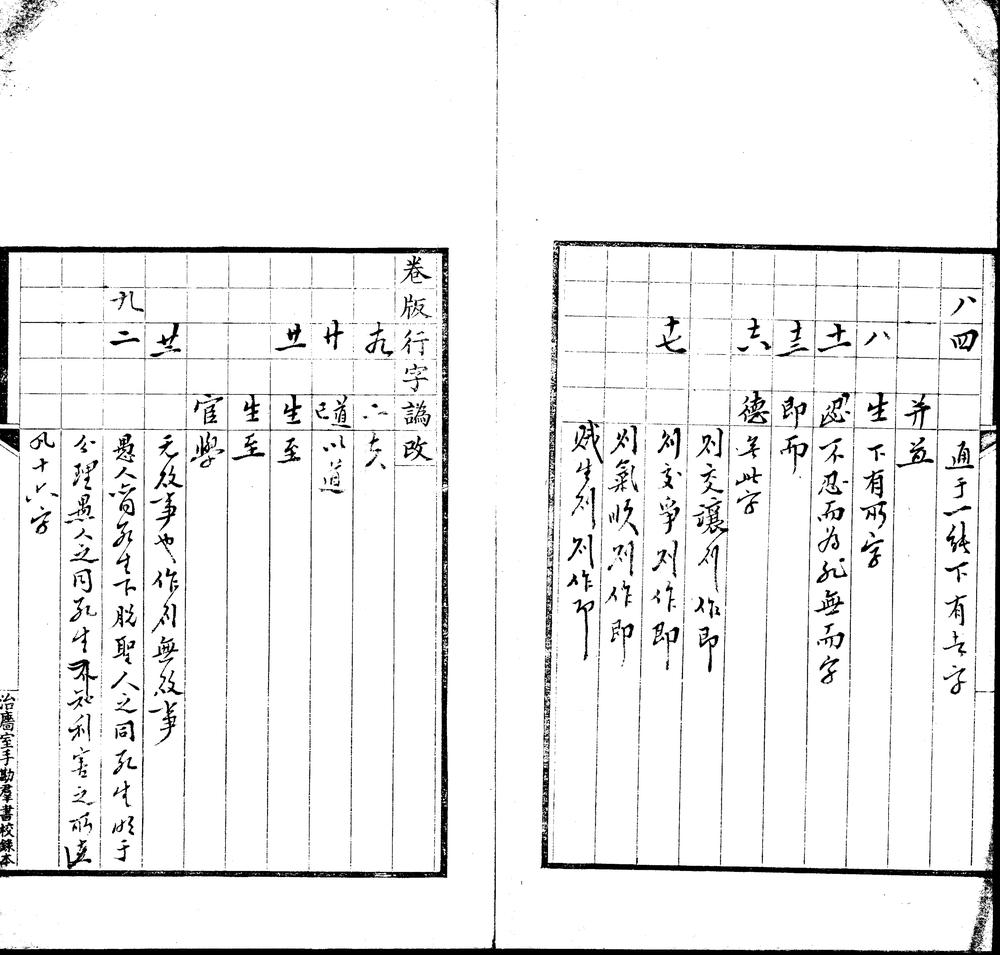 八 四 通于一能下有者字
并 并
八 生 下有所字
十一 忍 不忍而為非無而字
十三 即 而
十六 德 無此字
則交讓則作即
十七 則交爭則作即
則氣順則作即
賊生則則作即
卷 版 行 字 譌 改
九 六 夫
廿 道已 以道
廿一 生 至
生 至
官 學
廿二 元故事也作則無故事
九 二 愚人皆同死生下脫聖人之同死生明于
分理愚人之同死生不知利害之所在
凡十六字
治廧室手勘羣書校錄本